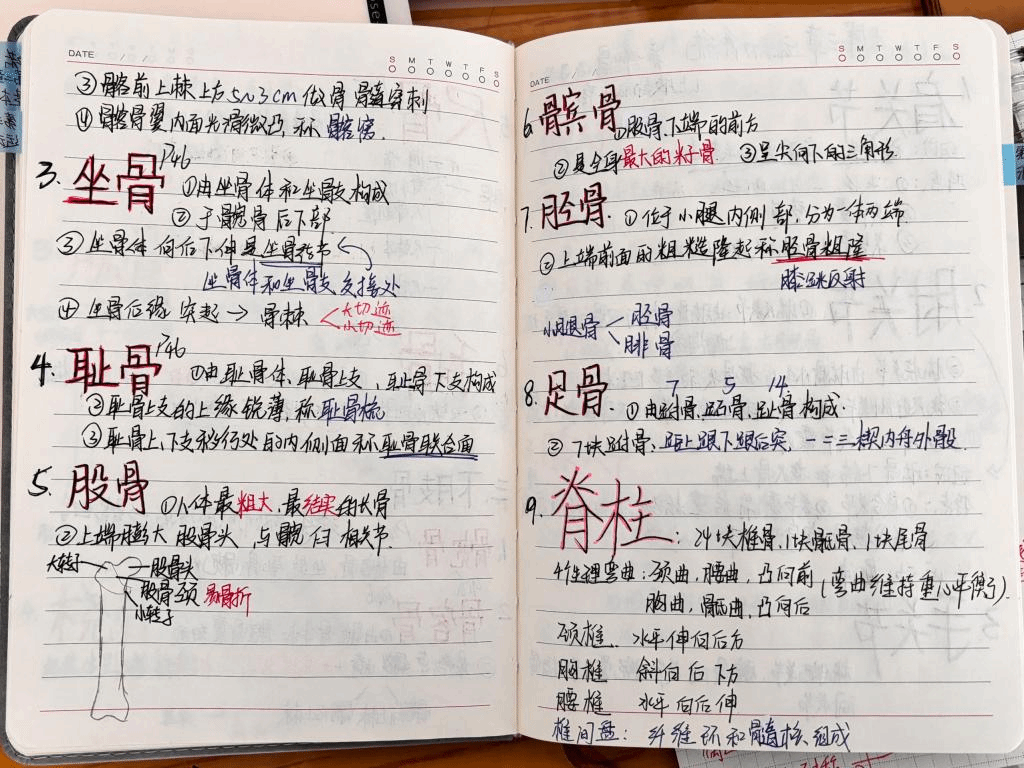 DATE / /
S M T W T F S
③髂前上棘上方5~3cm做骨髓穿刺
④髂骨翼内面光滑微凸,称髂窝.
3. 坐骨 P46 ①由坐骨体和坐骨支构成
②于髋骨后下部
③坐骨体向后下伸是坐骨结节
坐骨体和坐骨支交接处
④坐骨后缘突起→骨棘 大切迹
小切迹
4. 耻骨 P46 ①由耻骨体、耻骨上支,耻骨下支构成
②耻骨上支的上缘锐薄,称耻骨梳
③耻骨上、下支移行处的内侧面称耻骨联合面
5. 股骨 ①人体最粗大,最结实的长骨
②上端膨大股骨头,与髋臼相关节
大转子 股骨头
股骨颈 易骨折
小转子
DATE / /
S M T W T F S
6. 髌骨 ①股骨下端的前方
②是全身最大的籽骨 ③呈尖向下的三角形.
7. 胫骨. ①位于小腿内侧部,分为一体两端
②上端前面的粗糙隆起称胫骨粗隆
膝跳反射
小腿骨 胫骨
腓骨
8. 足骨. 7 5 14
①由跗骨、跖骨、趾骨构成.
②7块跗骨、距上跟下跟后突,一二三楔内舟外骰
9. 脊柱:24块椎骨、1块骶骨、1块尾骨
4个生理弯曲:颈曲,腰曲,凸向前(弯曲维持重心平衡).
胸曲,骶曲,凸向后
颈椎 水平伸向后方
胸椎 斜向后下方
腰椎 水平向后伸
椎间盘:纤维环和髓核组成